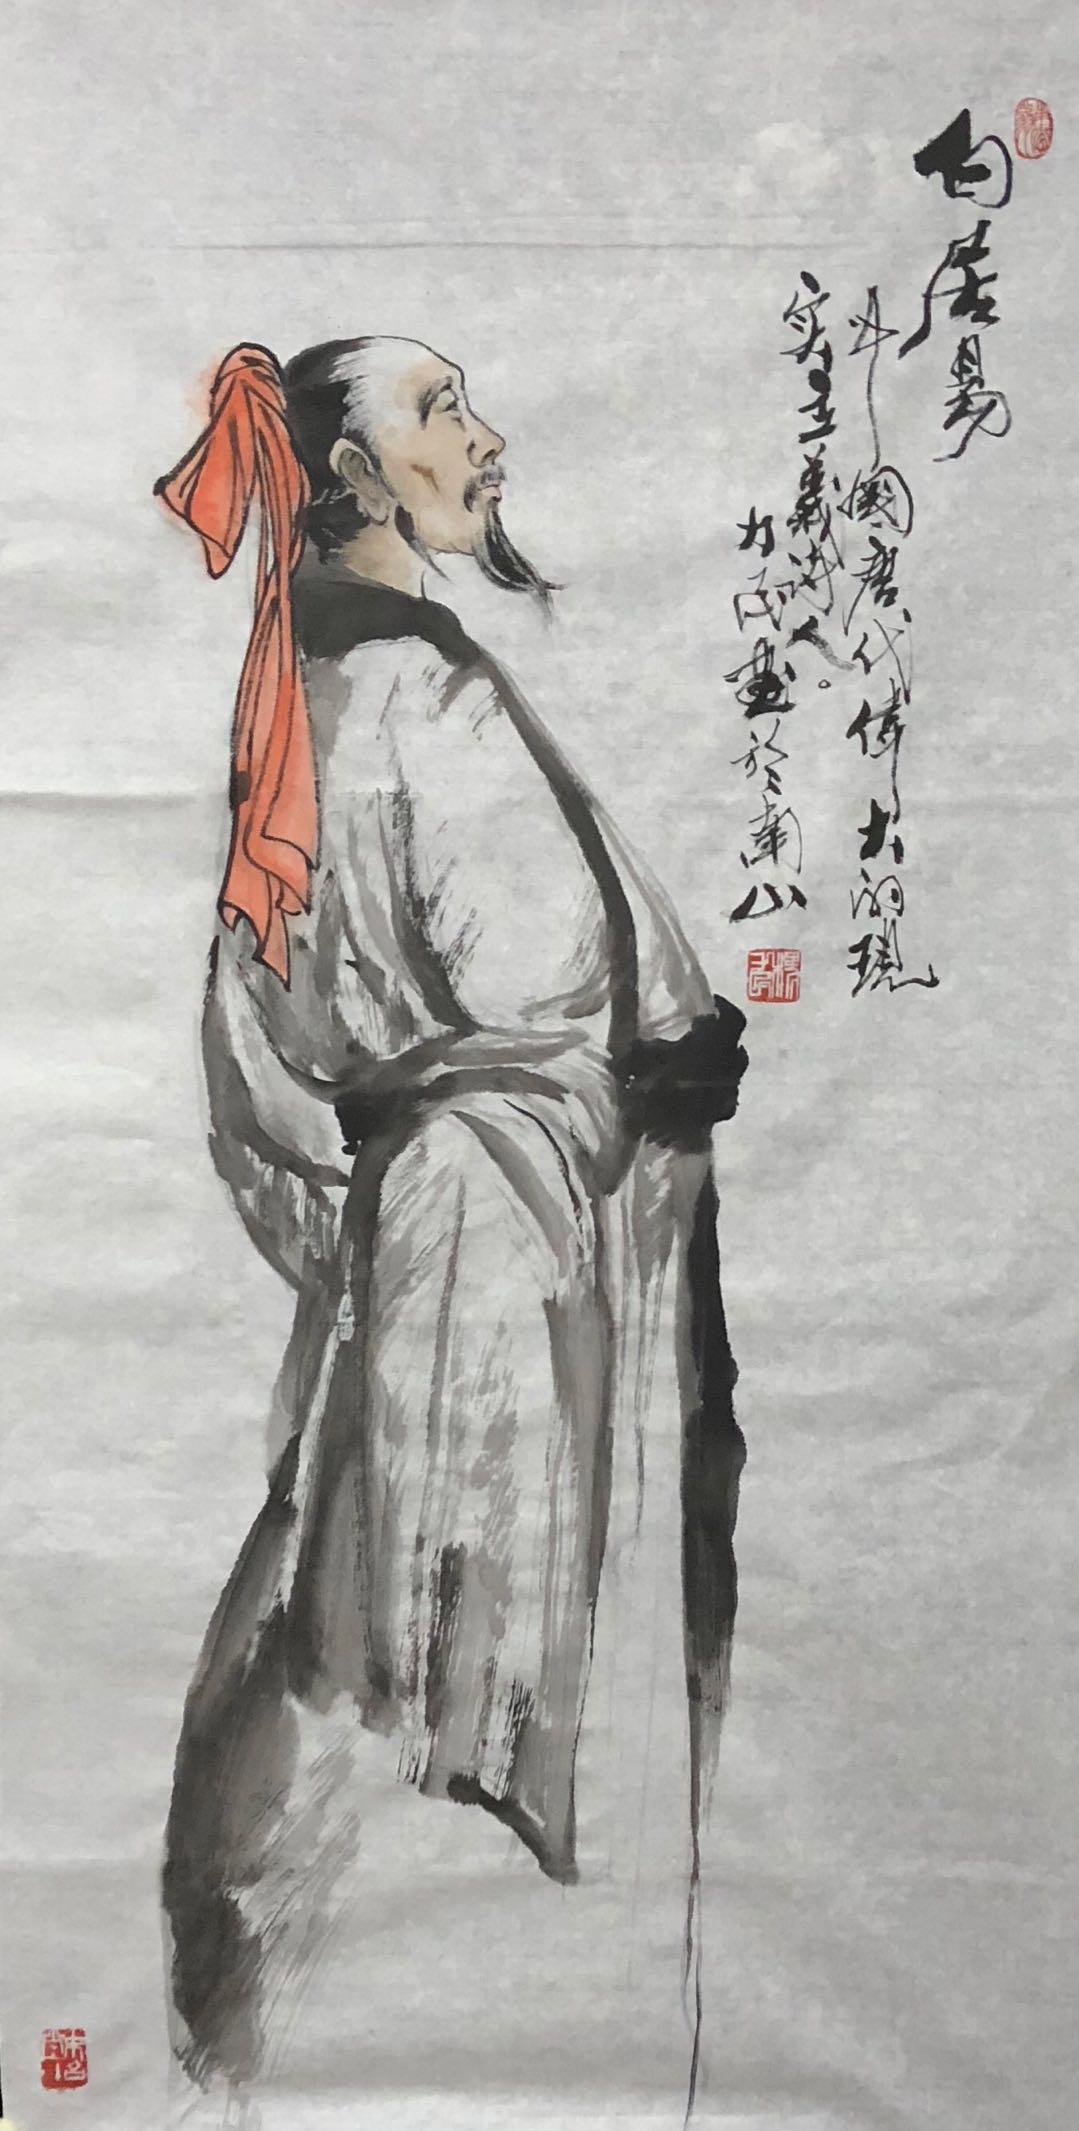 白居易
中國唐代偉大的現
实主義詩人。
力民畫於南山